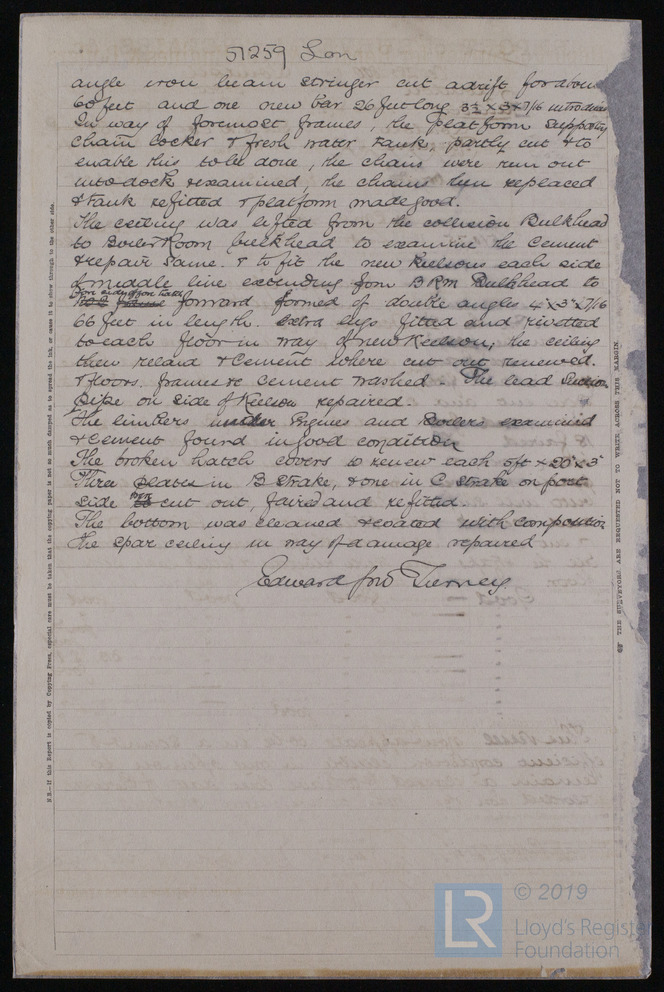 51259 Lon
angle iron beam stringer cut adrift for about
60 feet and one new bar 26 feet long 3½ × 3 × 7/16 introduced
In way of foremost frames, the platform supporting
chain locker & fresh water tank, partly cut & to
enable this to be done, the chains were run out
into dock & examined, the chains then replaced
& tank refitted & platform made good.
The ceiling was lifted from the collision Bulkhead
to Boiler Room bulkhead to examine the Cement
& repair same. & to fit the new Keelsons each side
of middle line extending from B Rm Bulkhead to
forward formed of double angles 4 × 3 × 7/16
66 feet in length. Extra lugs fitted and rivetted
to each floor in way of new Keelson, the ceiling
then relaid & Cement where cut out renewed.
& floors, frames & cement washed. The lead Suction
pipe on side of Keelson repaired.
The limbers under Engines and Boilers examined
& cement found in good condition
The broken hatch covers to renew each × 20" × 3"
Three plates in B Strake, & one in C strake on port
side cut out, faired and refitted.
The bottom was cleaned & coated with composition
The spar ceiling in way of damage repaired
Edward Jno Tierney
N.B.—If this Report is copied by Copying Press, especial care must be taken that the copying paper is not so much damped as to spread the ink, or cause it to show through to the other side.
THE SURVEYORS ARE REQUESTED NOT TO WRITE ACROSS THIS MARGIN.
LR
© 2019
Lloyd's Register
Foundation